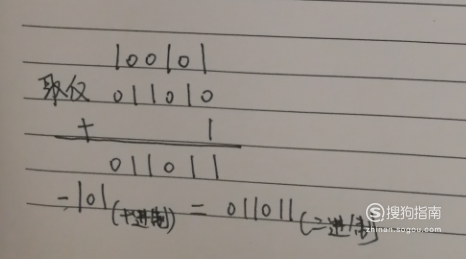 100101
取仅 011010
+ 1
011011
-101(十进制) = 011011(二进制)
搜狗指南
zhinan.sogou.com